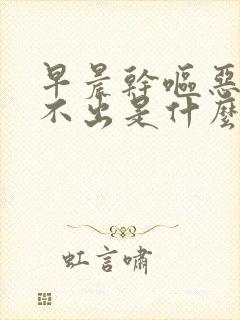 早晨幹嘔惡
不出是什麼
虹言嘯